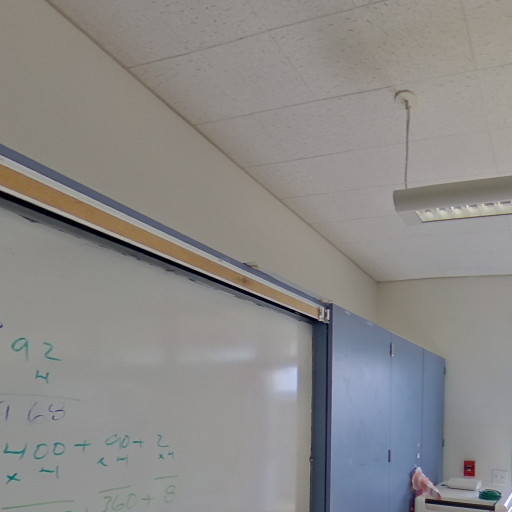 92
4
168
400 + 90 + 2
x 4 x 4 x 4
360 + 8